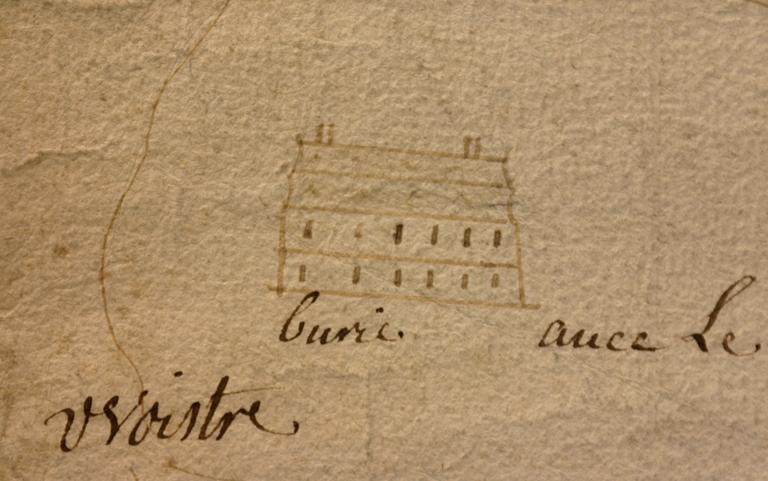 burie. auec Le
vvoistre.